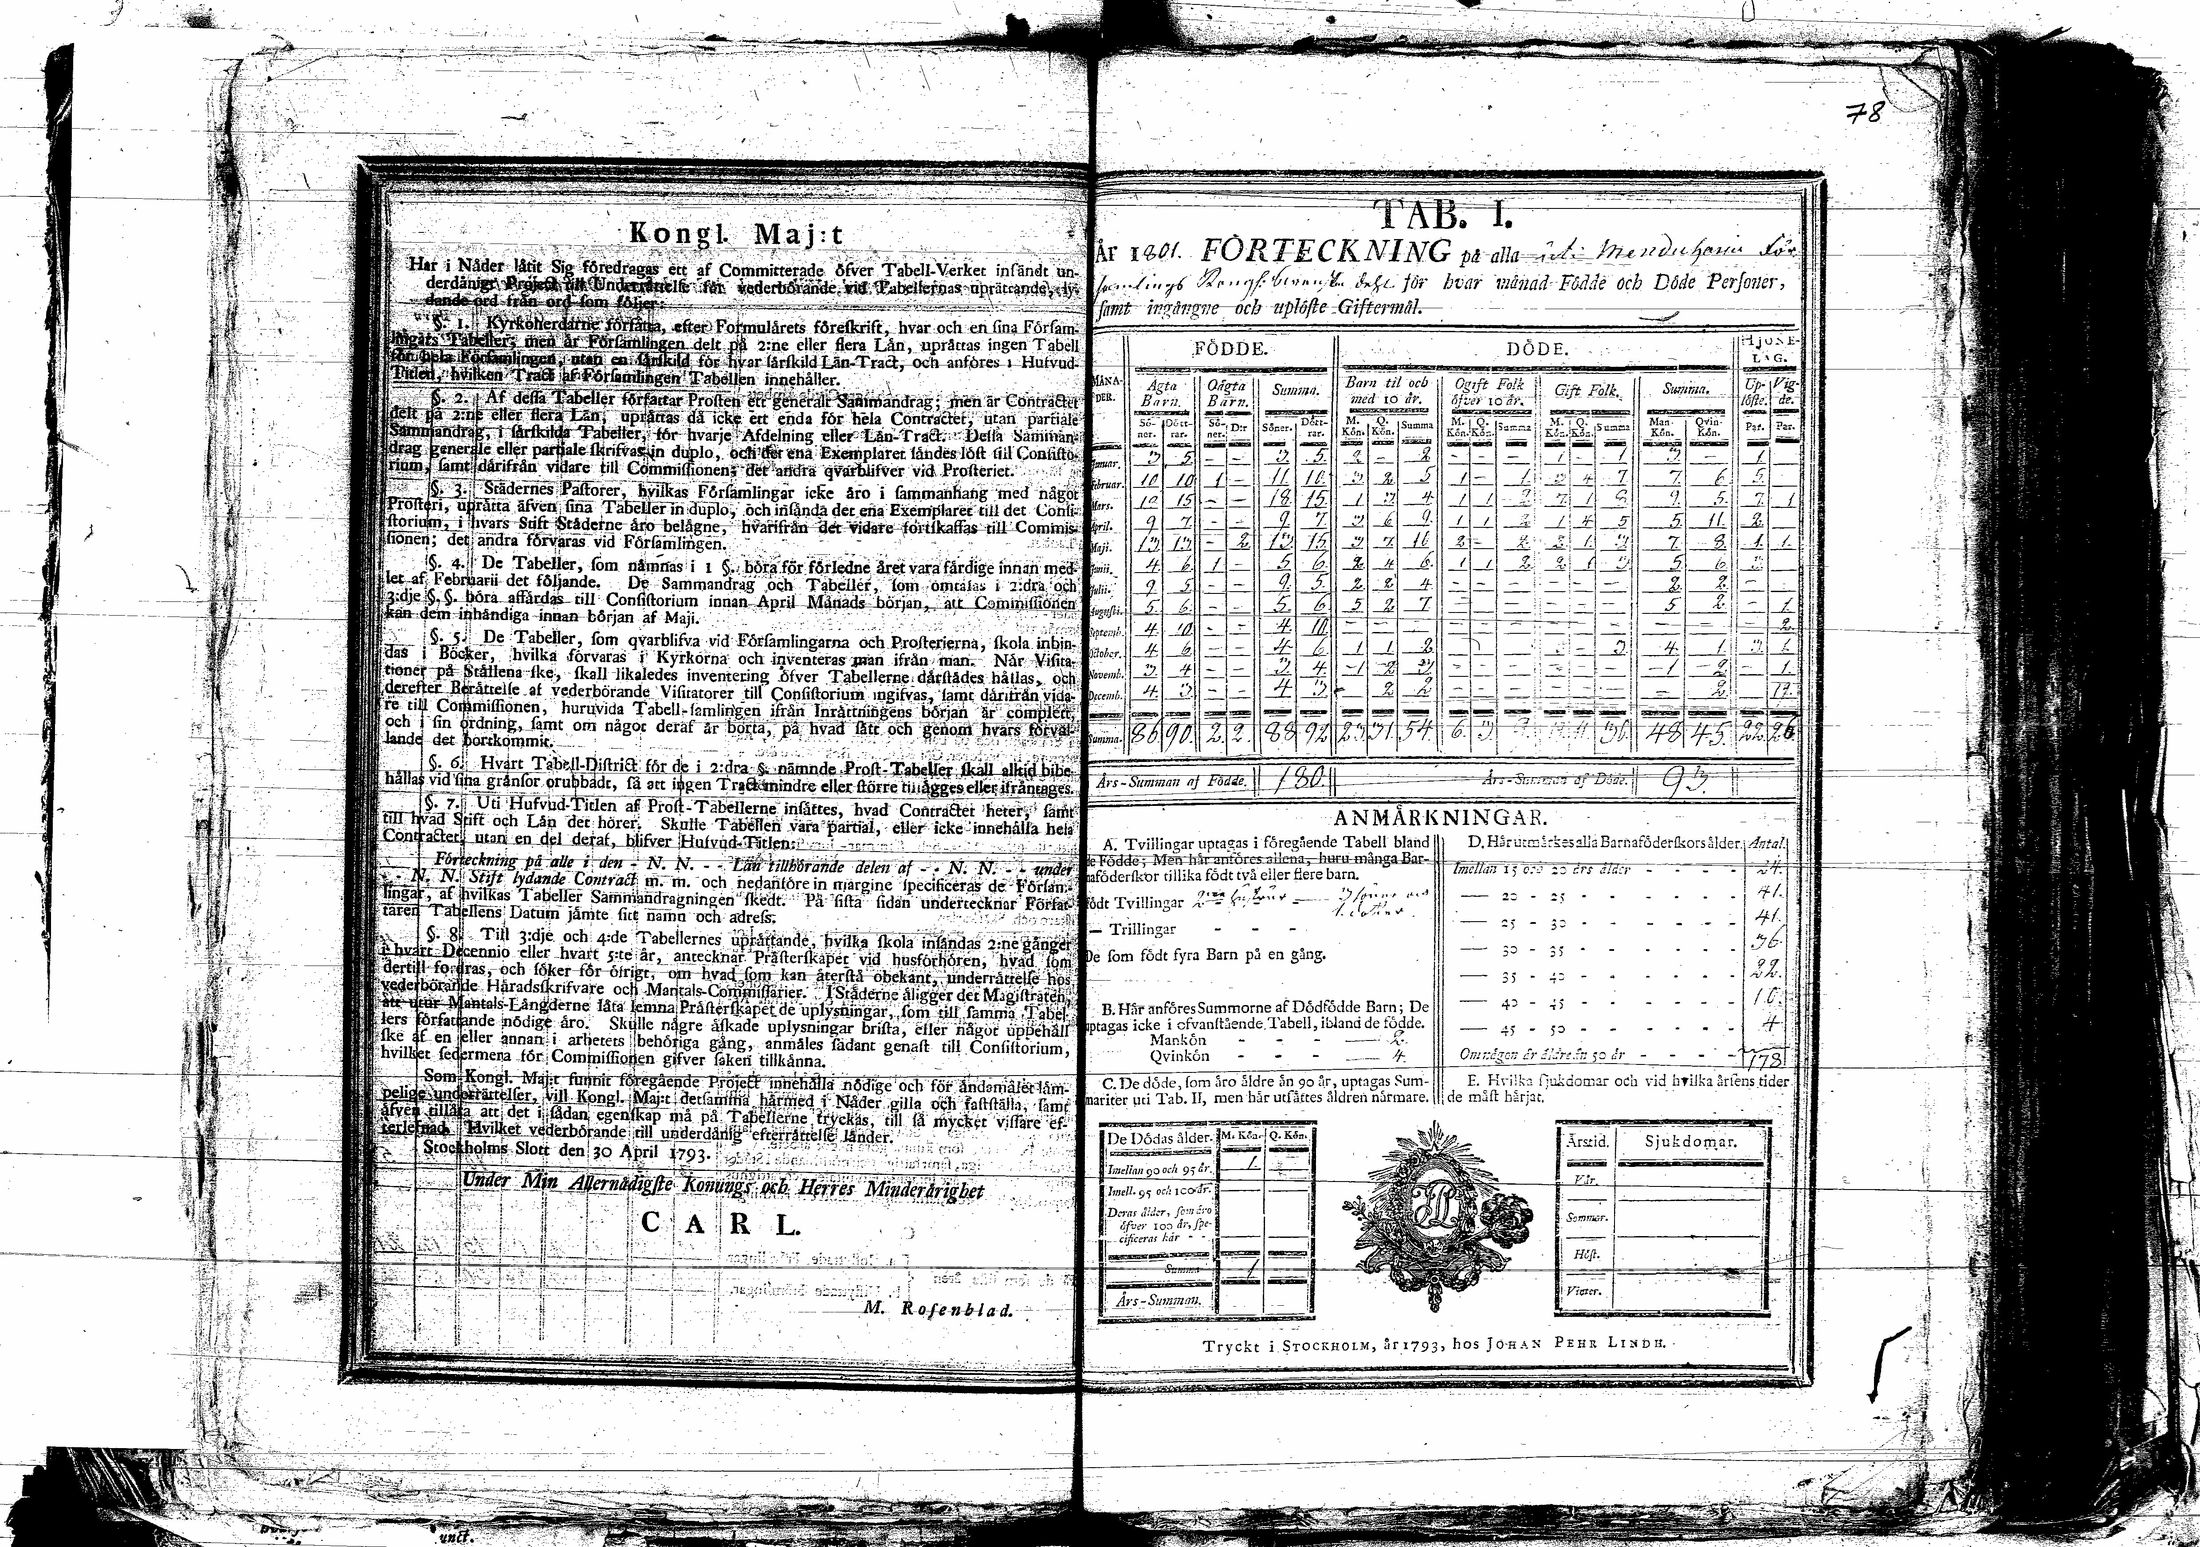 78
Kongl. Maj:t
Har i Nåder låtit Sig föredragas ett af Committerade öfver Tabell-Verket insändt un-
derdånigt Project till Underrättelse för vederbörande vid Tabellernas uprättande, ly-
dande ord från ord som följer:
§. 1. Kyrkoherdarne författa, efter Formulårets föreskrift, hvar och en sina Försam-
lingars Tabeller; men är Församlingen delt på 2:ne eller flera Län, uprättas ingen Tabell
för hela Församlingen, utan en särskild för hvar särskild Län-Tract, och anföres i Hufvud-
Titlen, hvilken Tract af Församlingen Tabellen innehåller.
§. 2. Af dessa Tabeller författar Prosten ett generalt Sammandrag; men är Contractet
delt på 2:ne eller flera Län, uprättas då icke ett enda för hela Contractet, utan partiale
Sammandrag, i särskilda Tabeller, för hvarje Afdelning eller Län-Tract. Dessa Samman-
drag generale eller partiale skrifvas in duplo, och det ena Exemplaret sändes löst till Consisto-
rium, samt därifrån vidare till Commissionen; det andra qvarblifver vid Prosteriet.
§. 3. Städernes Pastorer, hvilkas Församlingar icke äro i sammanhang med något
Prosteri, uprätta äfven sina Tabeller in duplo, och insända det ena Exemplaret till det Consi-
storium, i hvars Stift Städerne äro belägne, hvarifrån det vidare fortskaffas till Commis-
sionen; det andra förvaras vid Församlingen.
§. 4. De Tabeller, som nämnas i 1 §. böra för förledne året vara färdige innan med-
let af Februarii det följande. De Sammandrag och Tabeller, som omtalas i 2:dra och
3:dje §. §. böra affärdas till Consistorium innan April Månads början, att Commissionen
kan dem inhändiga innan början af Maji.
§. 5. De Tabeller, som qvarblifva vid Församlingarna och Prosterierna, skola inbin-
das i Böcker, hvilka förvaras i Kyrkorna och inventeras man ifrån man. När Visita-
tioner på Ställena ske, skall likaledes inventering öfver Tabellerne därstädes hållas, och
derefter Berättelse af vederbörande Visitatorer till Consistorium ingifvas, samt därifrån vida-
re till Commissionen, huruvida Tabell-samlingen ifrån Inrättningens början är complett,
och i sin ordning, samt om något deraf är borta, på hvad sätt och genom hvars förvål-
lande det bortkommit.
§. 6. Hvart Tabell-District för de i 2:dra §. nämnde Prost-Tabeller skall altid bibe-
hållas vid sina gränsor orubbadt, så att ingen Tract mindre eller större tillägges eller ifråntages.
§. 7. Uti Hufvud-Titlen af Prost-Tabellerne insättes, hvad Contractet heter, samt
till hvad Stift och Län det hörer. Skulle Tabellen vara partial, eller icke innehålla hela
Contractet, utan en del deraf, blifver Hufvud-Titlen:
Förteckning på alle i den - N. N. - - Län tillhörande delen af - - N. N. - - under
- - N. N. Stift lydande Contract m. m. och nedanföre in margine specificeras de Försam-
lingar, af hvilkas Tabeller Sammandragningen skedt. På sista sidan undertecknar Förfat-
taren Tabellens Datum jämte sitt namn och adress.
§. 8. Till 3:dje och 4:de Tabellernes uprättande, hvilka skola insändas 2:ne gånger
i hvart Decennio eller hvart 5:te år, antecknar Prästerskapet vid husförhören, hvad som
dertill fordras, och söker för öfrigt, om hvad som kan återstå obekant, underrättelse hos
vederbörande Häradsskrifvare och Mantals-Commissarier. I Städerne åligger det Magistraten,
att utur Mantals-Längderne låta lemna Prästerskapet de uplysningar, som till samma Tabel-
lers författande nödige äro. Skulle någre äskade uplysningar brista, eller något uppehåll
ske af en eller annan i arbetets behöriga gång, anmäles sådant genast till Consistorium,
hvilket sedermera för Commissionen gifver saken tillkänna.
Som Kongl. Maj:t funnit föregående Project innehålla nödige och för ändamålet läm-
pelige underrättelser, vill Kongl. Maj:t detsamma härmed i Nåder gilla och fastställa, samt
äfven tillåta att det i sådan egenskap må på Tabellerne tryckas, till så mycket vissare ef-
terlefnad. Hvilket vederbörande till underdånig efterrättelse länder.
Stockholms Slott den 30 April 1793.
Under Min Allernådigste Konungs och Herres Minderårighet
CARL.
M. Rosenblad.
TAB. I.
År 1801. FÖRTECKNING på alla uti
för hvar månad Födde och Döde Personer,
samt ingångne och uplöste Giftermål.
FÖDDE. DÖDE. HJONE-
LAG.
MÅNA- Ägta Oägta Summa. Barn til och Ogift Folk Gift Folk. Summa. Up- Vig-
DER. Barn. Barn. med 10 år. öfver 10 år. löste. de.
Sö- Dött- Sö- D:r Söner. Dött- M. Q. Summa M. Q. Summa M. Q. Summa Man- Qvin- Par. Par.
ner. rar. ner. rar. Kön. Kön. Kön. Kön. Kön. Kön. Kön. Kön.
Januar. 3 5 - - 3 5 2 - 2 - - - 1 - 1 3 - 1 -
Februar. 10 10 1 - 11 10 3 2 5 1 - 1 3 4 7 7 6 5 -
Mars. 18 15 - - 18 15 1 3 4 1 1 2 7 1 8 9 5 7 1
April. 9 7 - - 9 7 3 6 9 1 1 2 1 4 5 5 11 2 -
Maji. 13 13 - 2 13 15 3 7 10 2 - 2 2 1 3 7 8 1 1
Junii. 4 6 1 - 5 6 2 4 6 1 1 2 2 1 3 5 6 3 -
Julii. 9 5 - - 9 5 2 2 4 - - - - - - 2 2 - -
Augusti. 5 6 - - 5 6 5 2 7 - - - - - - 5 2 - 1
Septemb. 4 10 - - 4 10 - - - - - - - - - - - - 2
October. 4 6 - - 4 6 1 1 2 - - - 3 4 1 3 1
Novemb. 3 4 - - 3 4 1 2 3 - - - - - - 1 2 - 1
Decemb. 4 3 - - 4 3 - 2 2 - - - - - - - 2 - 19
Summa. 86 90 2 2 88 92 23 31 54 6 3 9 11 36 48 45 22 26
Års-Summan af Födde. 180. Års-Summan af Döde. 93.
ANMÄRKNINGAR.
A. Tvillingar uptagas i föregående Tabell bland
de Födde; Men här anföres allena, huru många Bar-
naföderskor tillika födt två eller flere barn.
födt Tvillingar
— Trillingar - - -
De som födt fyra Barn på en gång.
B. Här anföres Summorne af Dödfödde Barn; De
uptagas icke i ofvanstående Tabell, ibland de födde.
Mankön - - - 2.
Qvinkön - - - 4.
C. De döde, som äro äldre än 90 år, uptagas Sum-
mariter uti Tab. II, men här utsättes åldren närmare.
D. Här utmärkes alla Barnaföderskors ålder. Antal.
Imellan 15 och 20 års ålder - - - - 24.
— 20 - 25 - - - - - 41.
— 25 - 30 - - - - - 41.
— 30 - 35 - - - - - 36.
— 35 - 40 - - - - - 22.
— 40 - 45 - - - - - 10.
— 45 - 50 - - - - - 4
Om någon är äldre än 50 år - - - - 178
E. Hvilka sjukdomar och vid hvilka årsens tider
de mäst härjat.
De Dödas ålder. M. Kön. Q. Kön.
Imellan 90 och 95 år. 1.
Imell. 95 och 100 år.
Deras ålder, som äro
öfver 100 år, spe-
cificeras här - -
Summa 1
Års-Summan.
Årstid. Sjukdomar.
Vår.
Sommar.
Höst.
Vinter.
Tryckt i STOCKHOLM, år 1793, hos JOHAN PEHR LINDH.